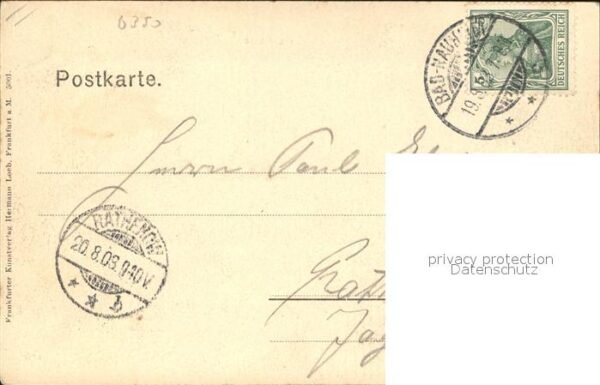 6350
Postkarte.
DEUTSCHES REICH
BAD-NAUH
19.8.
Herrn Paul
privacy protection
Datenschutz
RATHENOW
20.8.06.9-10V.
* * b
Frankfurter Kunstverlag Hermann Loeb, Frankfurt a. M. 5001.